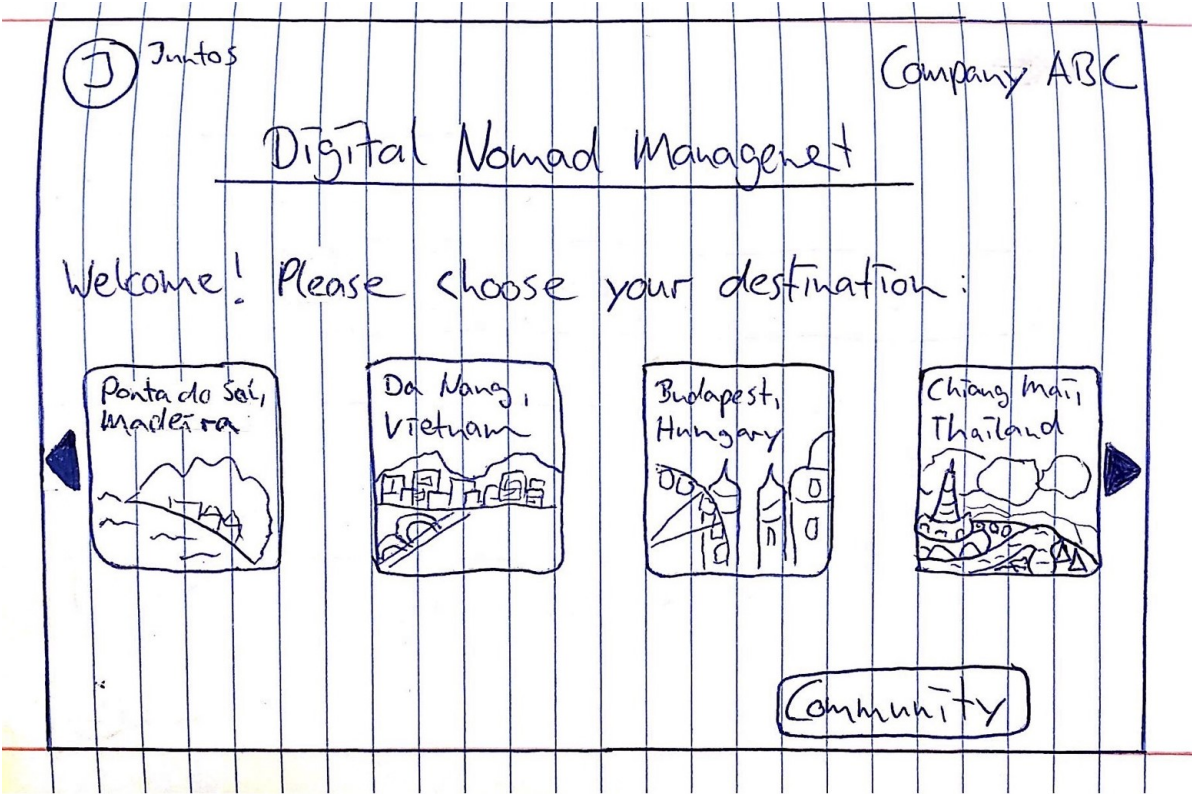 J
Juntos
Company ABC
Digital Nomad Managenet
Welcome! Please choose your destination:
Ponta do Sol,
Madeira
Da Nang,
Vietnam
Budapest,
Hungary
Chiang Mai,
Thailand
Community